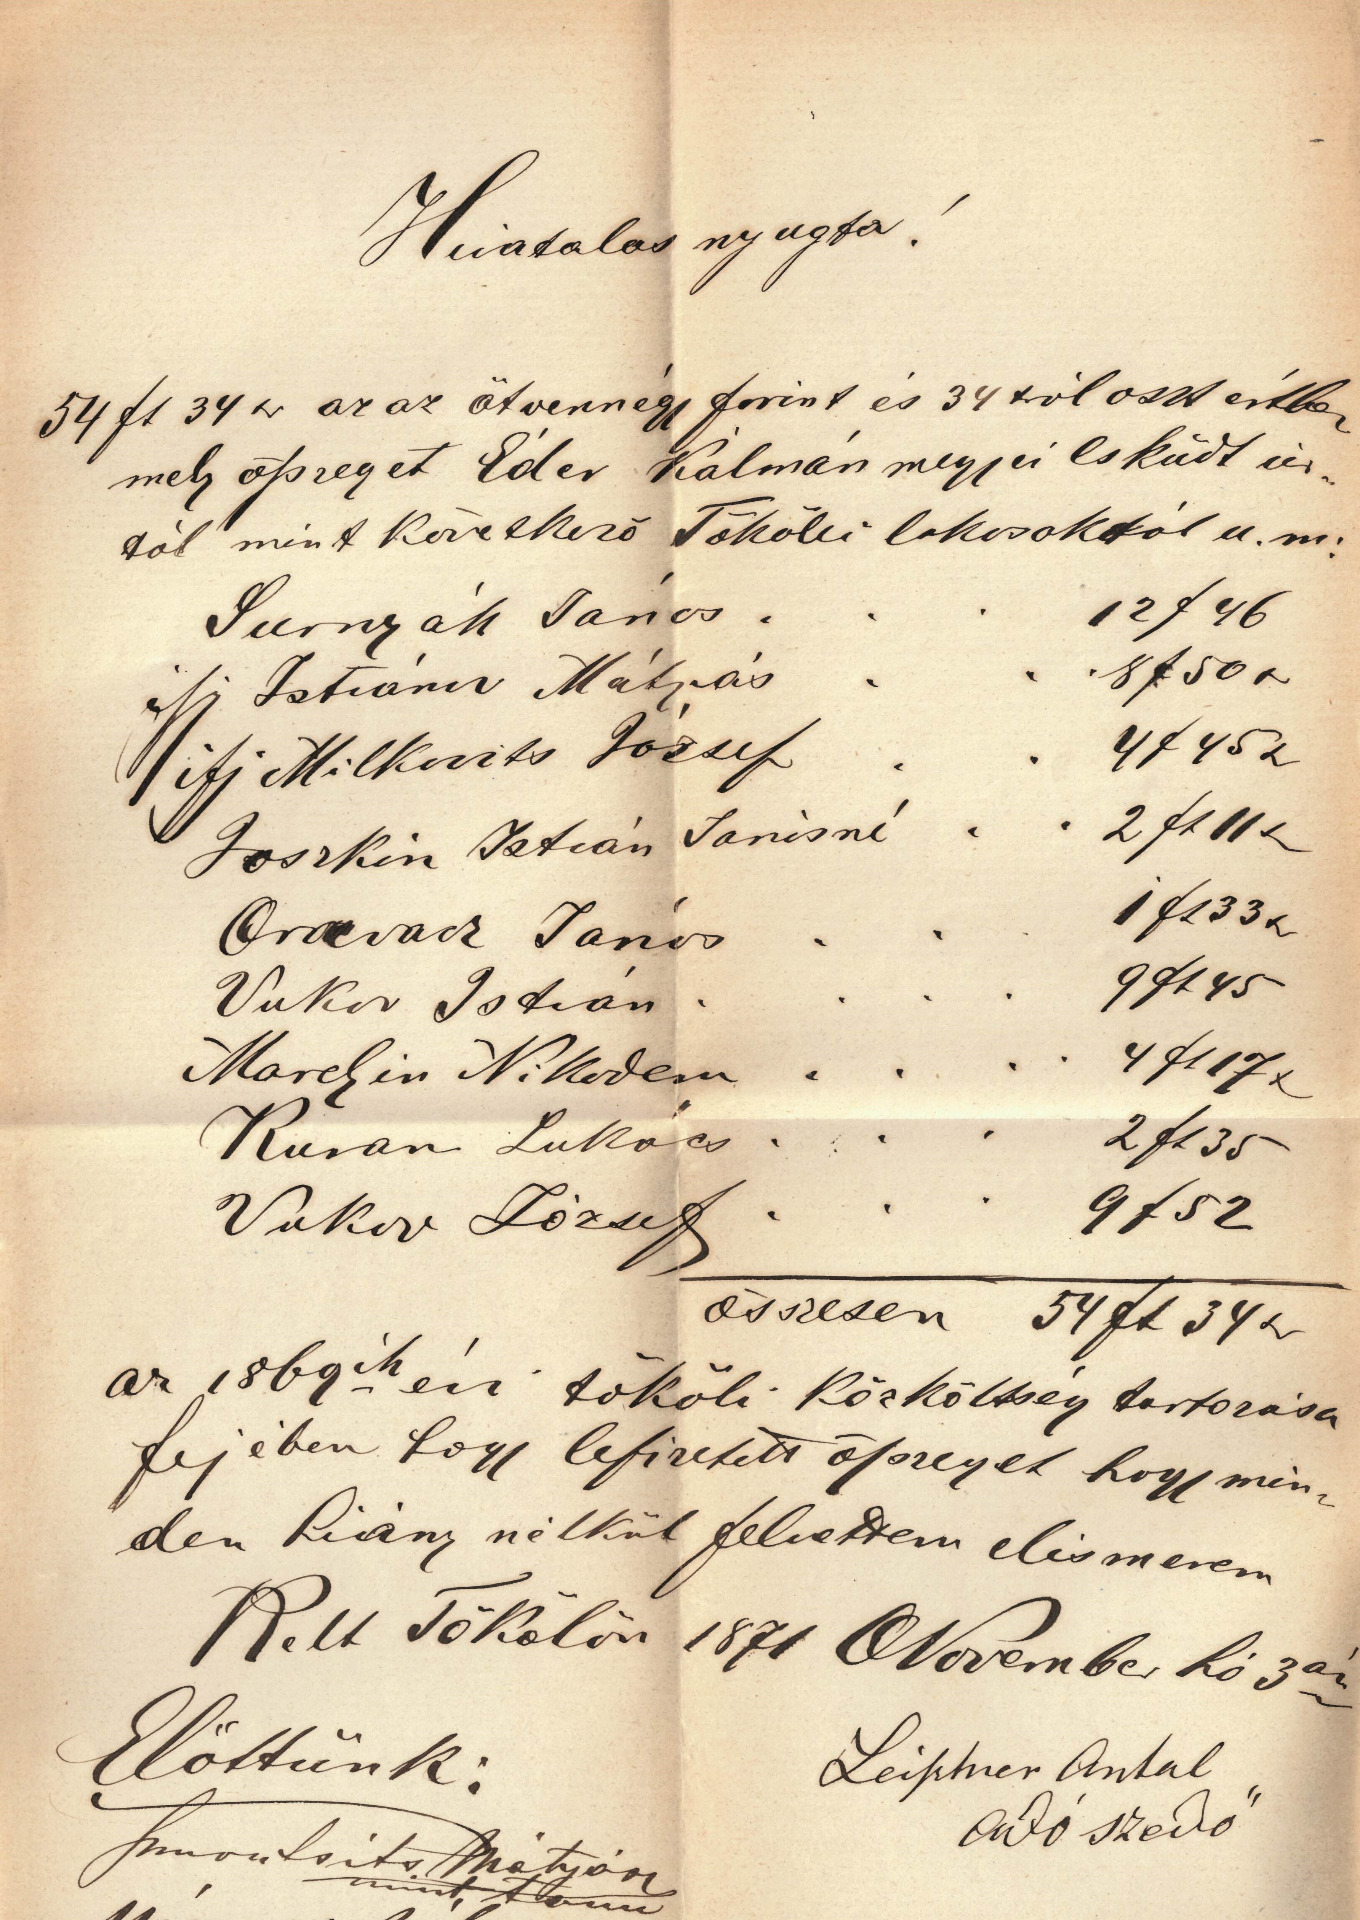 Hivatalos nyugta!
54 ft 34 kr az az ötvennégy forint és 34 król oszt értben
mely összeget Éder Kálmán megyei Esküdt úr-
tól mint következő Tökölei lakosoktól u. m:
Surnyák János . . . 12 f 46
ifj Istvánov Mátyás . . 8 f 50 kr
ifj Milkovits József . . 4 f 45 kr
Joszkin István Janisné . . 2 ft 11 kr
Oravacz János . . . 1 ft 33 kr
Vukov István . . . . 9 ft 45
Marelyin Nikodem . . . . 4 ft 17 kr
Kuran Lukács . . . 2 ft 35
Vukov József . . . 9 f 52
összesen 54 ft 34 kr
az 1869ik évi tököli közköltség tartozása
fejében hogy lefizetett összeget hogy min-
den hiány nélkül felvettem elismerem
Kelt Tökölön 1871 November hó 3án
Előttünk:
Leiptner Antal
adó szedő
Simontsits Mátyás
mint tanu